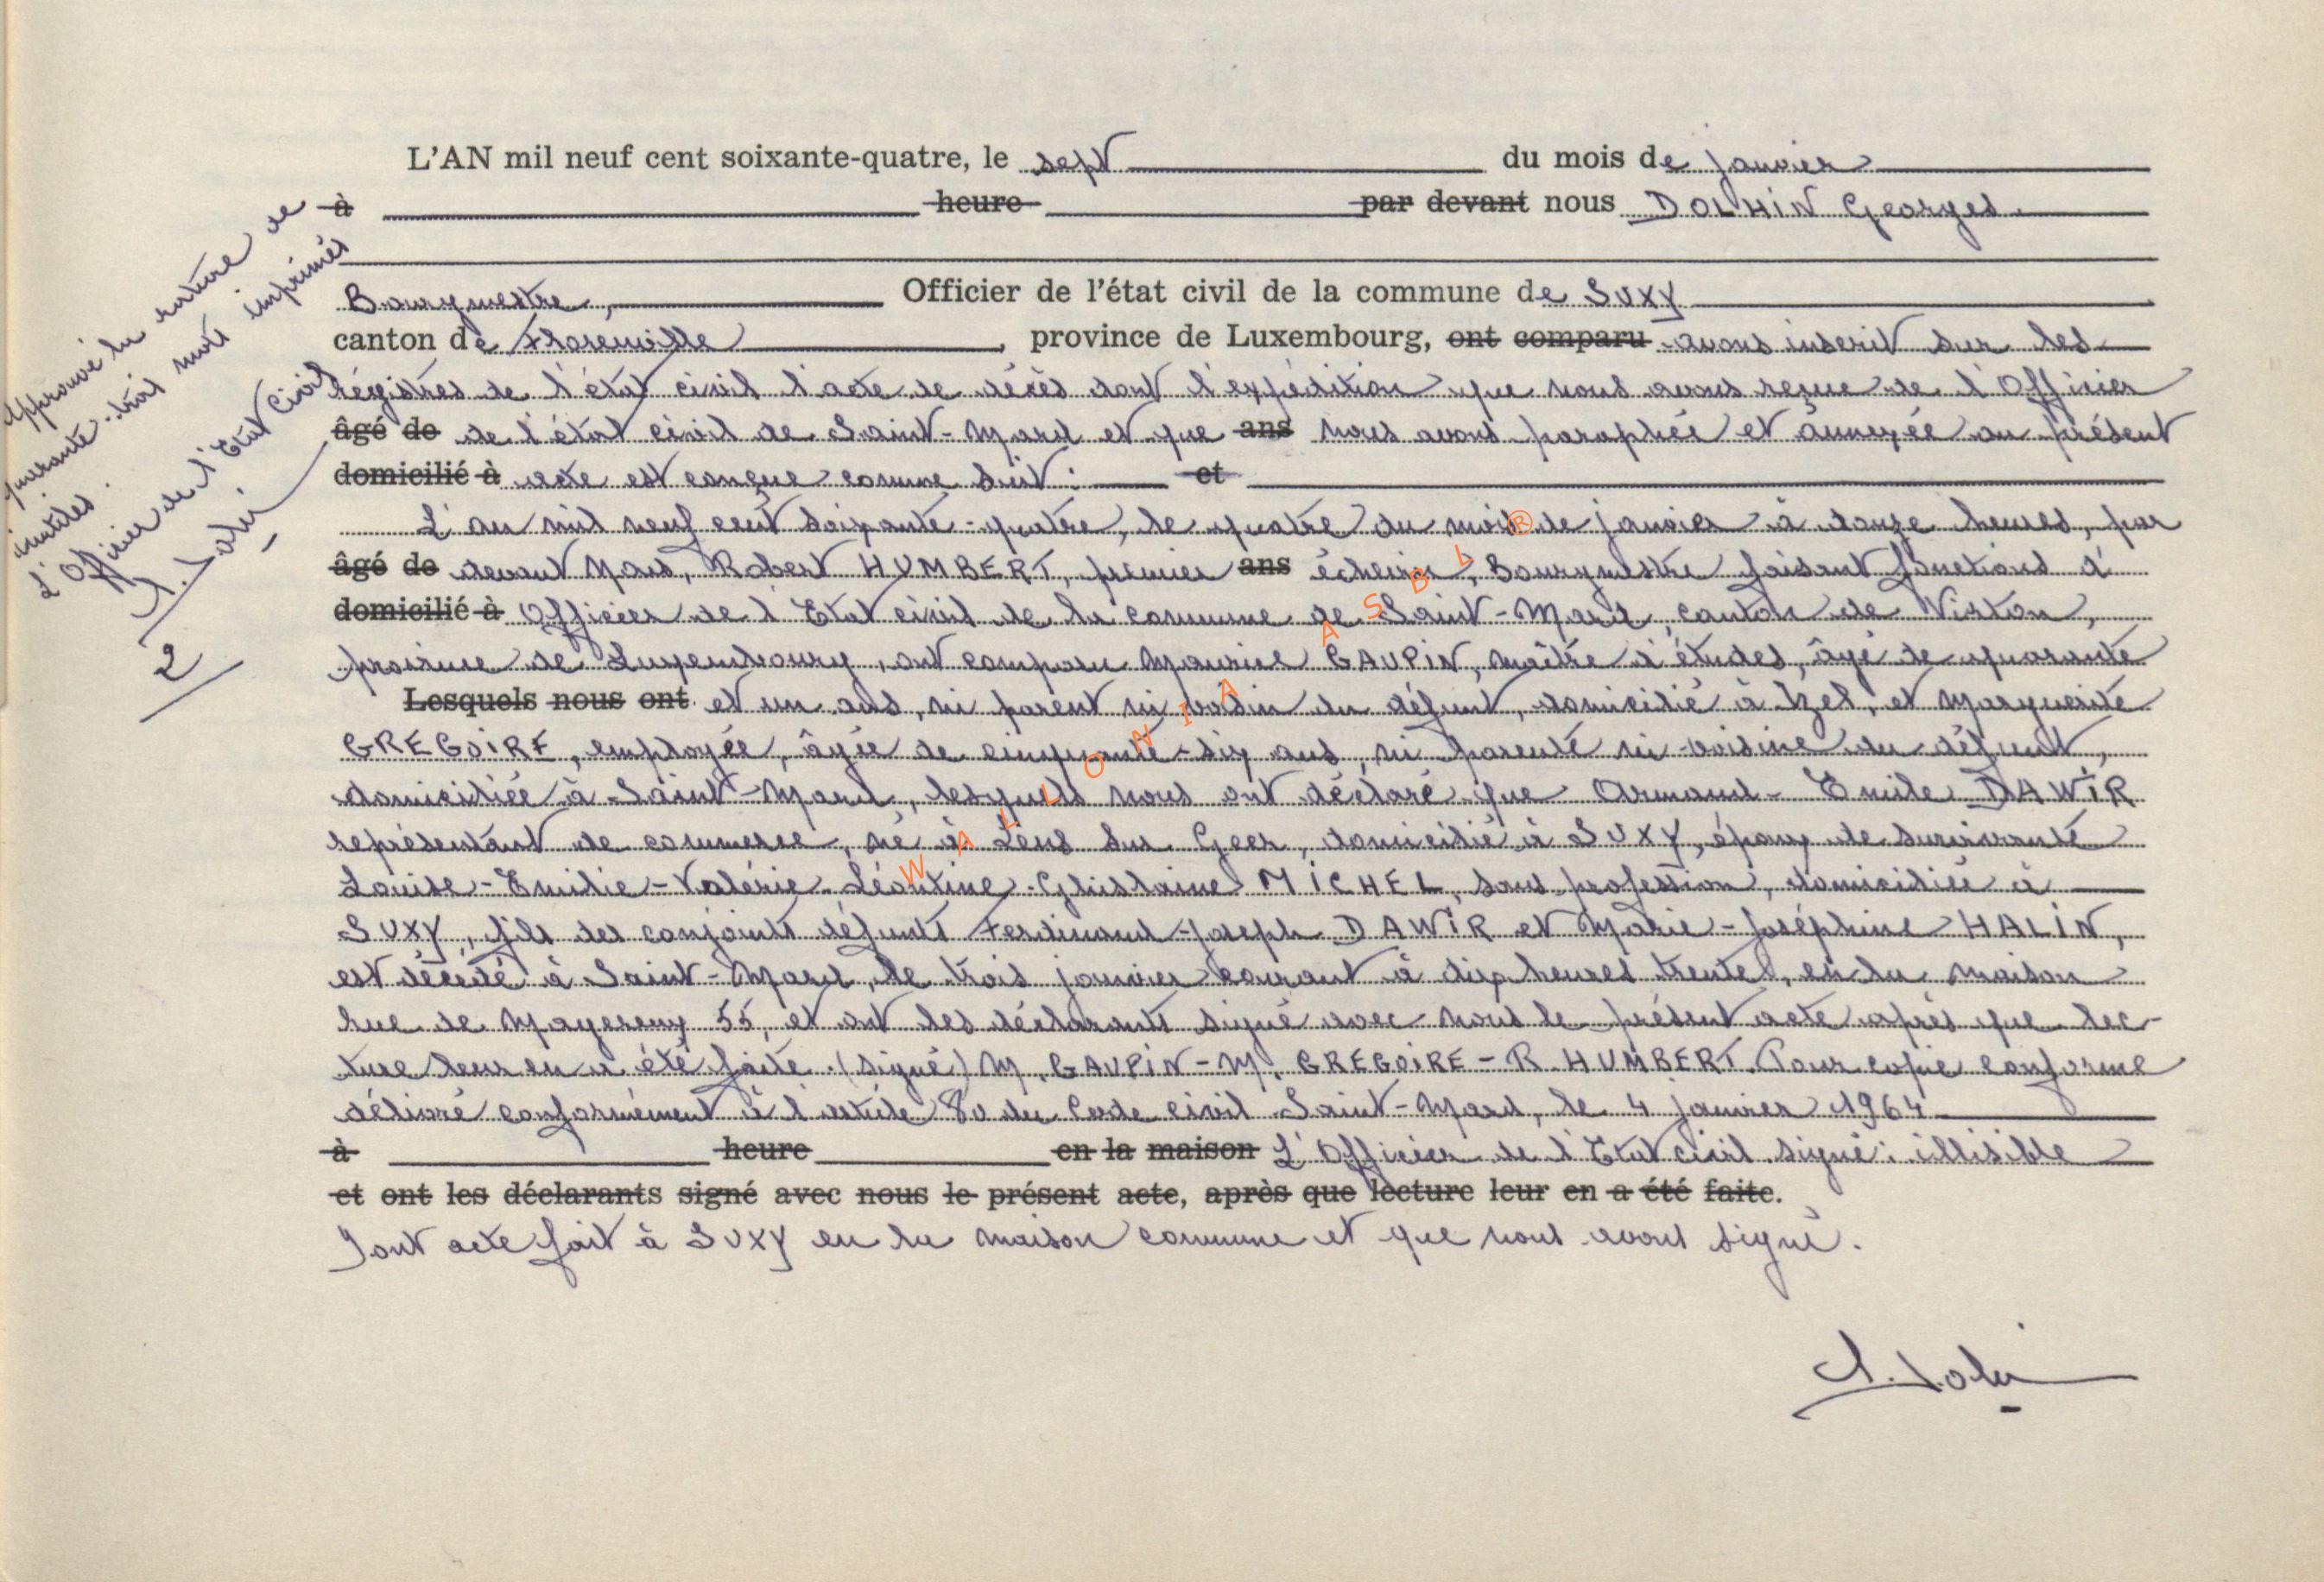 L'AN mil neuf cent soixante-quatre, le sept du mois de janvier
à heure par devant nous DOLHIN Georges.
Bourgmestre, Officier de l'état civil de la commune de SUXY
canton de Florenville, province de Luxembourg, ont comparu avons inscrit sur les
régistres de l'état civil l'acte de décès dont l'expédition que nous avons reçue de l'Officier
âgé de de l'état civil de Saint-Mard et que ans nous avons paraphée et annexée au présent
domicilié à acte est conçue comme suit : et
L'an mil neuf cent soixante-quatre, le quatre du mois de janvier à heures, par
âgé de devant Nous, Robert HUMBERT, premier ans échevin, Bourgmestre faisant fonctions d'
domicilié à Officier de l'Etat civil de la commune de Saint-Mard, canton de Virton,
province de Luxembourg, ont comparu Maurice GAUPIN, maître d'études, âgé de quarante
Lesquels nous ont et un ans, ni parent ni voisin du défunt, domicilié à Izel, et Marguerite
GREGOIRE, employée, âgée de cinquante-six ans, ni parente ni voisine du défunt,
domiciliée à Saint-Mard, lesquels nous ont déclaré que Armand-Emile DAWIR
représentant de commerce, né à Lens sur Geer, domicilié à SUXY, époux de survivante
Louise-Emilie-Valérie-Léontine-Ghislaine MICHEL, sans profession, domiciliée à
SUXY, fils des conjoints défunts Ferdinand-Joseph DAWIR et Marie-Joséphine HALIN,
est décédé à Saint-Mard, le trois janvier courant à dix heures trente, en la maison
rue de Mageroux 55, et ont les déclarants signé avec nous le présent acte après que lec-
ture leur en a été faite. (signé) M. GAUPIN - M. GREGOIRE - R. HUMBERT. Pour copie conforme
délivré conformément à l'article 80 du Code civil Saint-Mard, le 4 janvier 1964
à heure en la maison L'Officier de l'Etat civil signé : illisible
et ont les déclarants signé avec nous le présent acte, après que lecture leur en a été faite.
Dont acte fait à SUXY en la maison commune et que nous avons signé.
Approuvé la rature de
quarante-trois mots imprimés
inutiles.
L'Officier de l'Etat Civil
2
WALLONIA ASBL ®